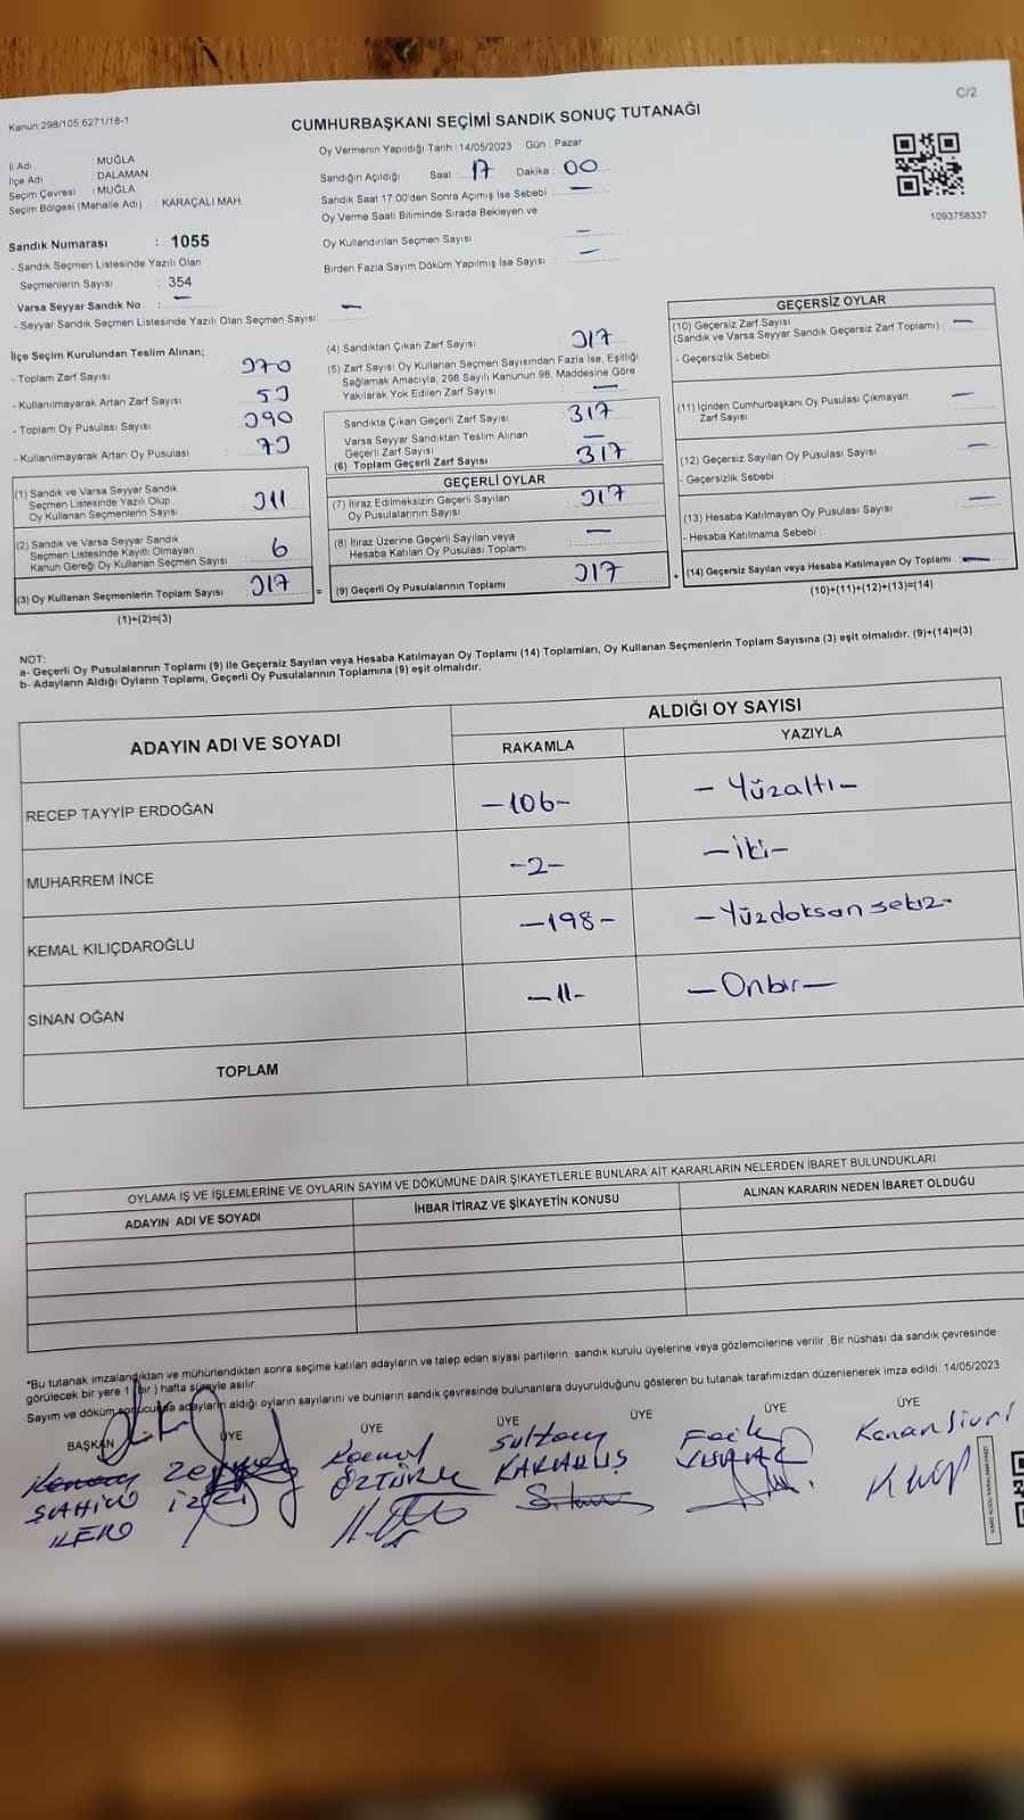 C/2
Kanun:298/105 6271/18-1
CUMHURBAŞKANI SEÇİMİ SANDIK SONUÇ TUTANAĞI
İl Adı : MUĞLA
İlçe Adı : DALAMAN
Seçim Çevresi : MUĞLA
Seçim Bölgesi (Mahalle Adı) : KARAÇALI MAH.
Oy Vermenin Yapıldığı Tarih : 14/05/2023 Gün : Pazar
Sandığın Açıldığı Saat 17 Dakika : 00
Sandık Saat 17:00'den Sonra Açımış İse Sebebi : —
Oy Verme Saati Bitiminde Sırada Bekleyen ve
Oy Kullandırılan Seçmen Sayısı —
Birden Fazla Sayım Döküm Yapılmış İse Sayısı : —
1093758337
Sandık Numarası : 1055
- Sandık Seçmen Listesinde Yazılı Olan
Seçmenlerin Sayısı : 354
Varsa Seyyar Sandık No : —
- Seyyar Sandık Seçmen Listesinde Yazılı Olan Seçmen Sayısı: —
İlçe Seçim Kurulundan Teslim Alınan;
- Toplam Zarf Sayısı 370
- Kullanılmayarak Artan Zarf Sayısı 53
- Toplam Oy Pusulası Sayısı 390
- Kullanılmayarak Artan Oy Pusulası : 73
(1) Sandık ve Varsa Seyyar Sandık
Seçmen Listesinde Yazılı Olup
Oy Kullanan Seçmenlerin Sayısı 311
(2) Sandık ve Varsa Seyyar Sandık
Seçmen Listesinde Kayıtlı Olmayan
Kanun Gereği Oy Kullanan Seçmen Sayısı 6
(3) Oy Kullanan Seçmenlerin Toplam Sayısı 317
(1)+(2)=(3)
(4) Sandıktan Çıkan Zarf Sayısı 317
(5) Zarf Sayısı Oy Kullanan Seçmen Sayısından Fazla İse, Eşitliği
Sağlamak Amacıyla, 298 Sayılı Kanunun 98. Maddesine Göre
Yakılarak Yok Edilen Zarf Sayısı —
Sandıkta Çıkan Geçerli Zarf Sayısı 317
Varsa Seyyar Sandıktan Teslim Alınan
Geçerli Zarf Sayısı —
(6) Toplam Geçerli Zarf Sayısı 317
GEÇERLİ OYLAR
(7) İtiraz Edilmeksizin Geçerli Sayılan
Oy Pusulalarının Sayısı 317
(8) İtiraz Üzerine Geçerli Sayılan veya
Hesaba Katılan Oy Pusulası Toplamı —
= (9) Geçerli Oy Pusulalarının Toplamı 317
GEÇERSİZ OYLAR
(10) Geçersiz Zarf Sayısı —
(Sandık ve Varsa Seyyar Sandık Geçersiz Zarf Toplamı)
- Geçersizlik Sebebi
(11) İçinden Cumhurbaşkanı Oy Pusulası Çıkmayan
Zarf Sayısı —
(12) Geçersiz Sayılan Oy Pusulası Sayısı —
- Geçersizlik Sebebi
(13) Hesaba Katılmayan Oy Pusulası Sayısı —
- Hesaba Katılmama Sebebi :
+ (14) Geçersiz Sayılan veya Hesaba Katılmayan Oy Toplamı —
(10)+(11)+(12)+(13)=(14)
NOT:
a- Geçerli Oy Pusulalarının Toplamı (9) ile Geçersiz Sayılan veya Hesaba Katılmayan Oy Toplamı (14) Toplamları, Oy Kullanan Seçmenlerin Toplam Sayısına (3) eşit olmalıdır. (9)+(14)=(3)
b- Adayların Aldığı Oyların Toplamı, Geçerli Oy Pusulalarının Toplamına (9) eşit olmalıdır.
ADAYIN ADI VE SOYADI ALDIĞI OY SAYISI
RAKAMLA YAZIYLA
RECEP TAYYİP ERDOĞAN —106— — Yüzaltı —
MUHARREM İNCE —2— — iki —
KEMAL KILIÇDAROĞLU —198— — Yüzdoksan sekiz —
SİNAN OĞAN —11— — Onbir —
TOPLAM
OYLAMA İŞ VE İŞLEMLERİNE VE OYLARIN SAYIM VE DÖKÜMÜNE DAİR ŞİKAYETLERLE BUNLARA AİT KARARLARIN NELERDEN İBARET BULUNDUKLARI
ADAYIN ADI VE SOYADI İHBAR İTİRAZ VE ŞİKAYETİN KONUSU ALINAN KARARIN NEDEN İBARET OLDUĞU
*Bu tutanak imzalandıktan ve mühürlendikten sonra seçime katılan adayların ve talep eden siyasi partilerin sandık kurulu üyelerine veya gözlemcilerine verilir .Bir nüshası da sandık çevresinde
görülecek bir yere 1 ( bir ) hafta süreyle asılır
Sayım ve döküm sonucunda adayların aldığı oyların sayılarını ve bunların sandık çevresinde bulunanlara duyurulduğunu gösteren bu tutanak tarafımızdan düzenlenerek imza edildi. 14/05/2023
BAŞKAN ÜYE ÜYE ÜYE ÜYE ÜYE ÜYE
ŞAHİN
İLERİ
Kemal
ÖZTÜRK
Sultan
KARAKUŞ
Kenan